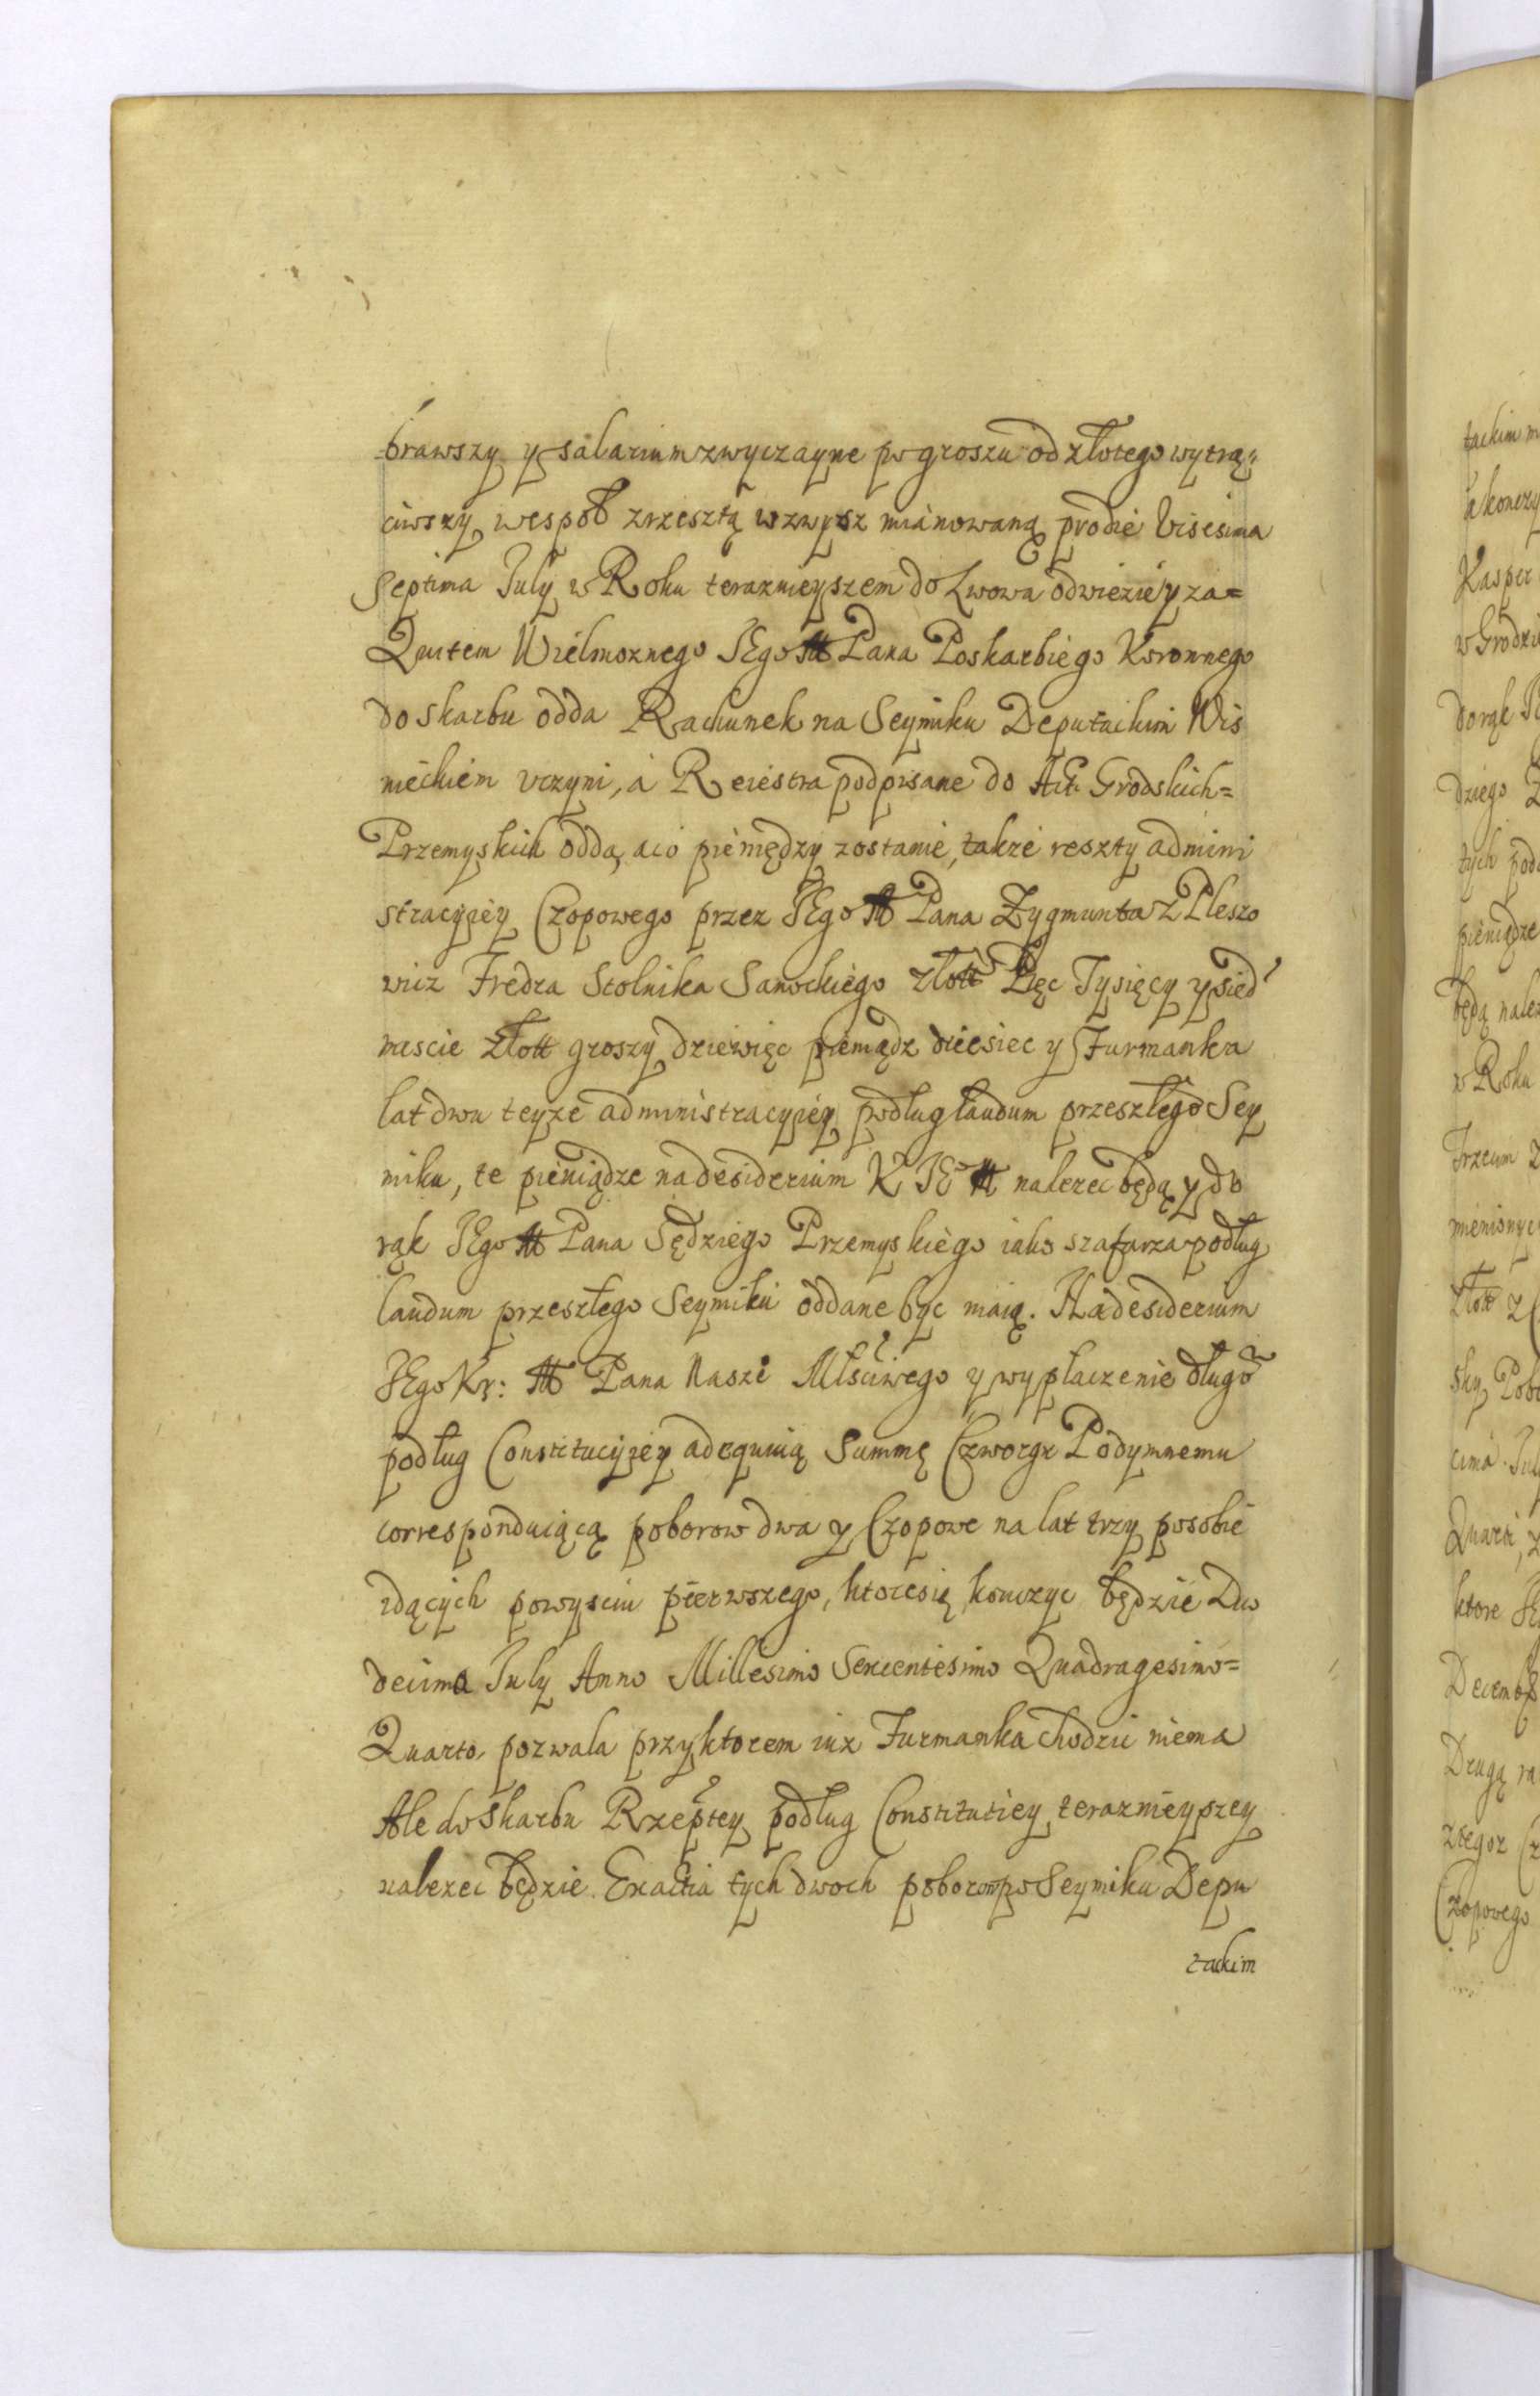 brawszy y salarium zwyczayne po groszu od złotego wytrą„
ciwszy wespoł zresztą wzwysz mianowaną prodie Visesima
Septima July w Roku teraznieyszem do Lwowa odwiezie y za=
Quitem Wielmoznego JEgo M Pana Poskarbiego Koronnego
do skarbu odda Rachunek na Seymiku Deputackim Wis
nieckiem vczyni, a Reiestra podpisane do Act Grodskich=
Przemyskich odda, a co pieniędzy zostanie, takze reszty admini
stracyiey Czopowego przez JEgo M Pana Zygmunta z Pleszo
wicz Fredra Stolnika Sanockiego złott Pięc Tysięcy y sied
mascie złott groszy dziewięc pieniądz dziesiec y Furmanka
lat dwu teyze administracyiey podług laudum przeszłego Sey
miku, te pieniądze na desiderium K JE M nalezec będą y do
rąk JEgo M Pana Sędziego Przemyskiego iako szafarza podług
laudum przeszłego Seymiku oddane byc maią. Na desiderium
JEgo Kr: M Pana Nasze Młściwego y wypłaczenie długo
podług Constitucyiey adequuią Summę Czworgu Podymnemu
corresponduiącą poborow dwa y Czopowe na lat trzy posobie
idących powysciu pierwszego, ktore się konczyc będzie Duo
decima July Anno Millesimo Sexcentesimo Quadragesimo=
Quarto, pozwala przyktorem iuz Furmanka chodzic niema
Ale do skarbu Rzeptey podług Constitutiey teraznieyszey
nalezec będzie. Exactia tych dwoch poborow po Seymiku Depu
tackim
tackim
Kasper
w Grodzie
do rąk
dziego
tych
pieniądze
będą
w Roku
mienionych
złott
Quarti,
ktore
Drugą
Czopowego